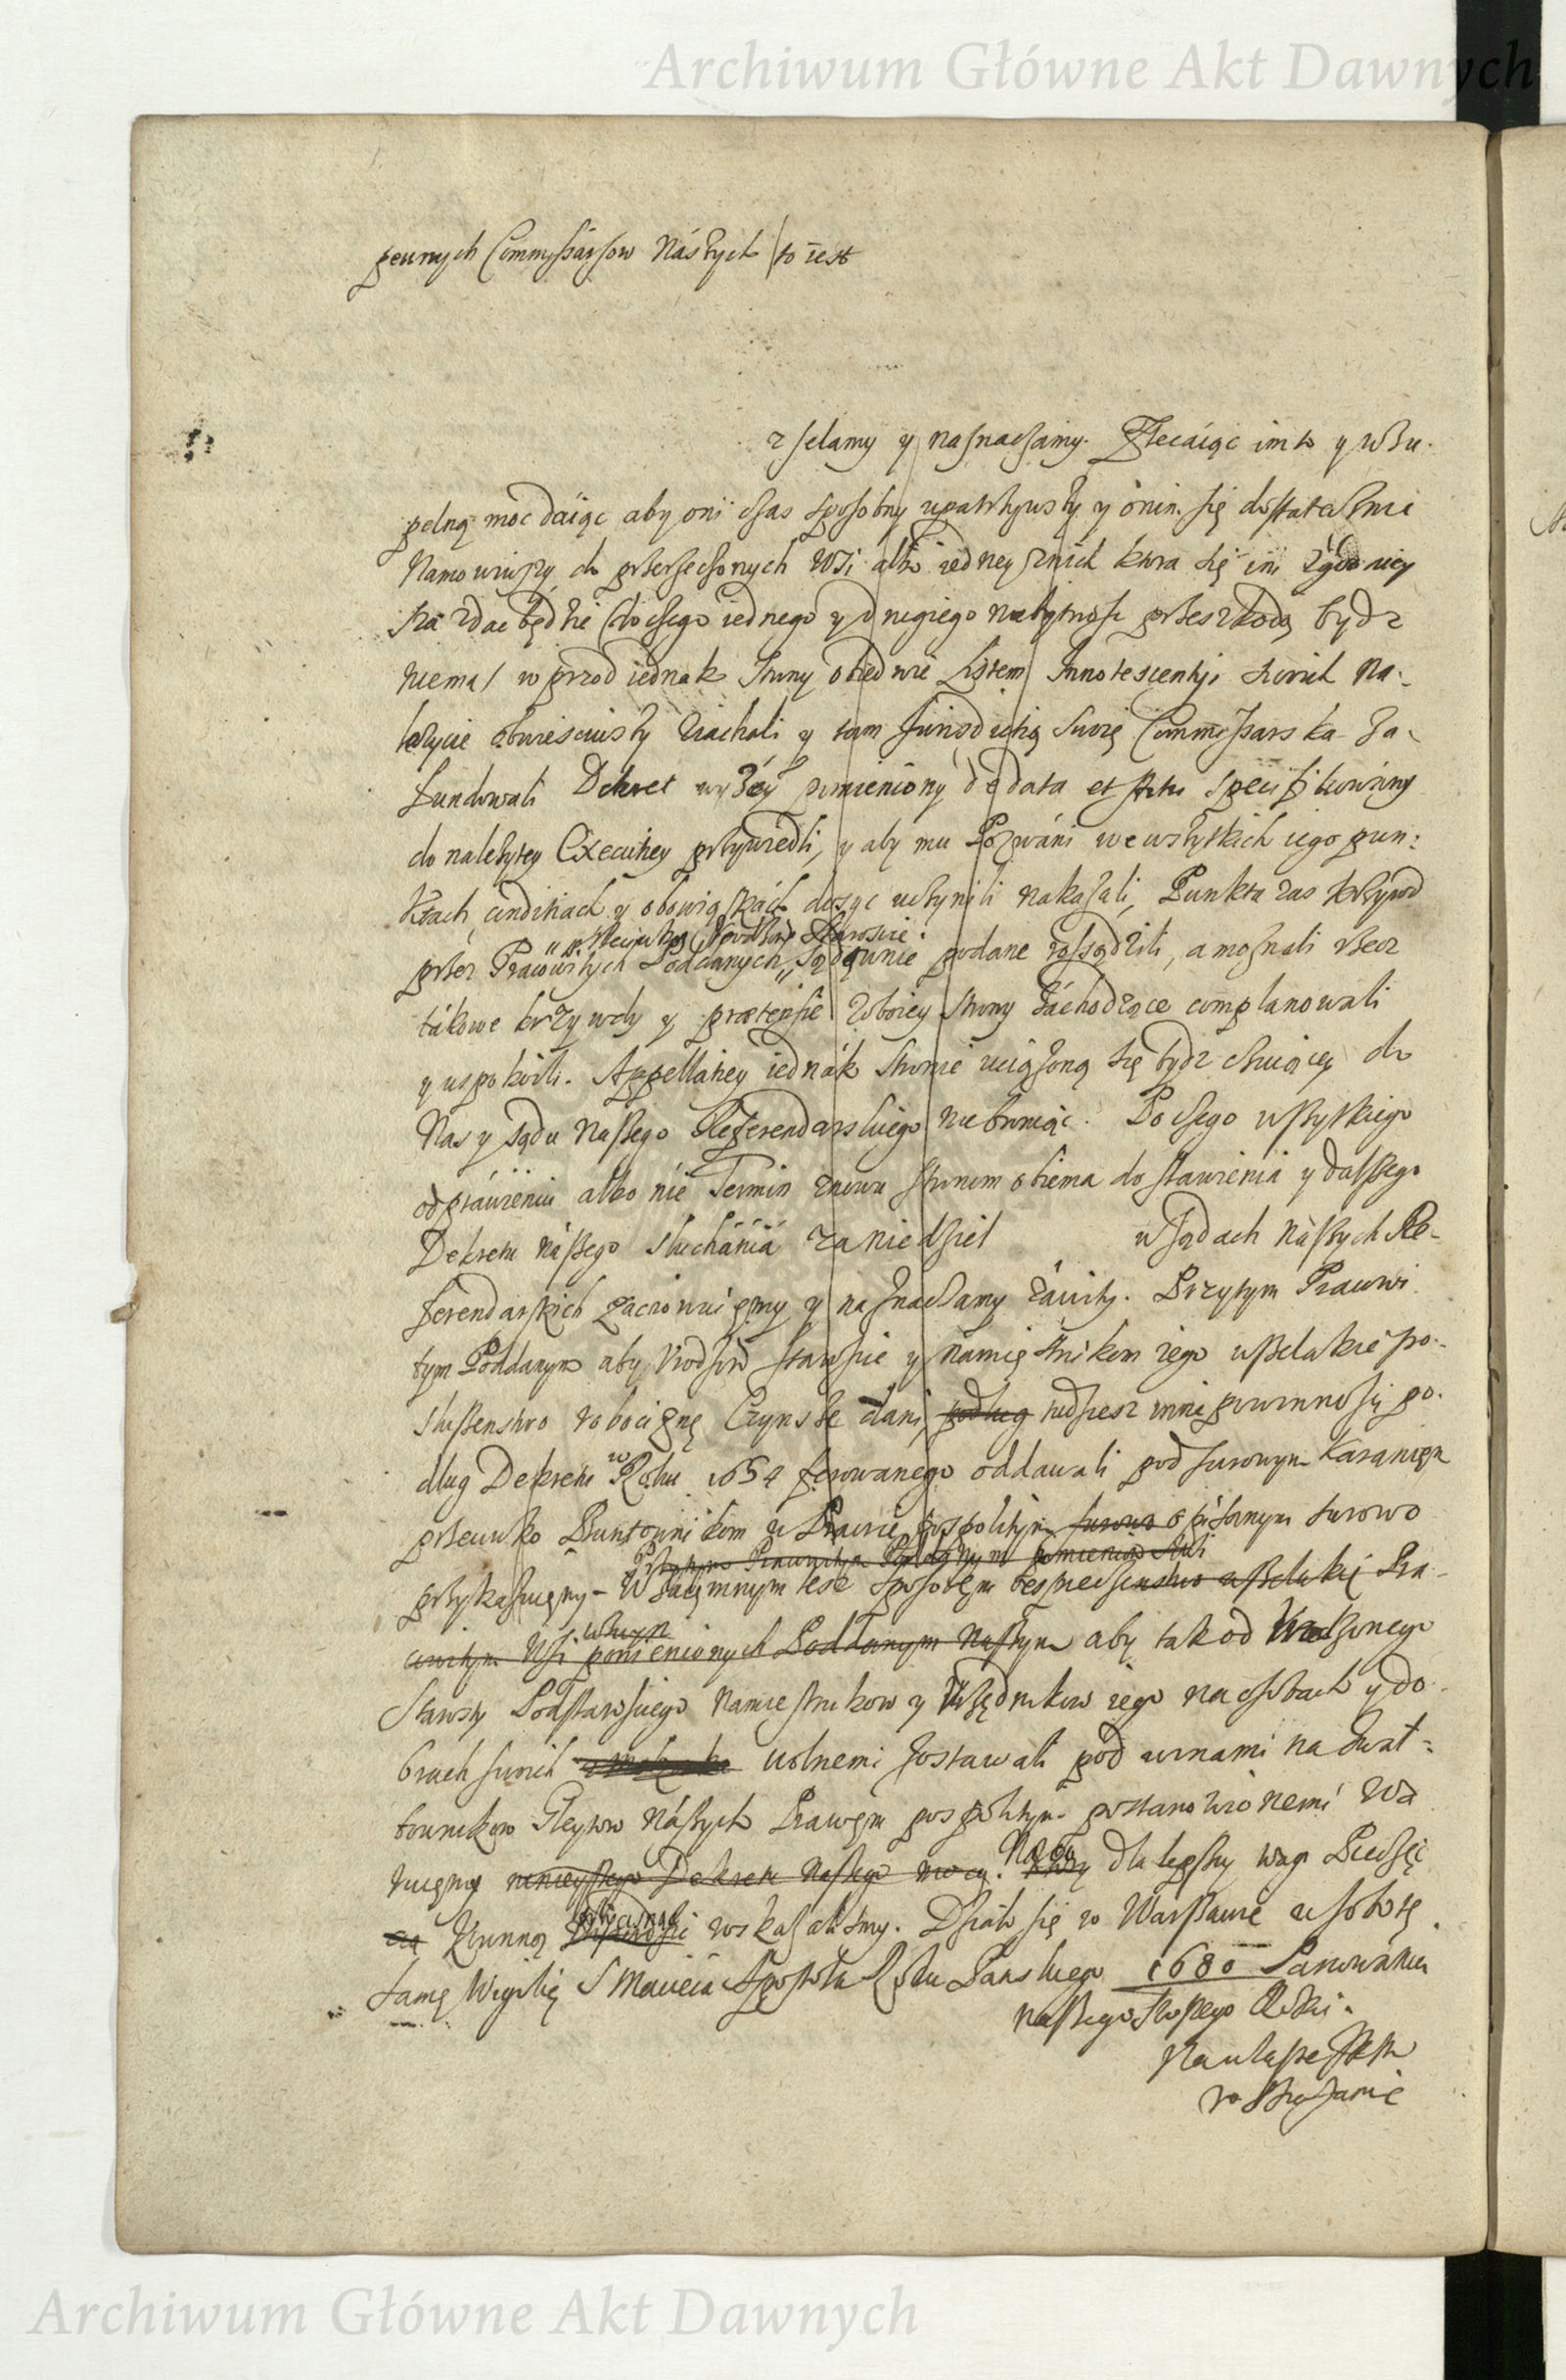 Archiwum Główne Akt Dawnych
pewnych Commyssarzow Naszych to iest
zselamy y naznaczamy. Zlecaiąc im to y wzu-
pełną moc daiąc aby oni czas sposobny upatrzywszy y onim się dostatecznie
Namowiwszy do przerzeczonych Wsi albo iedney znich ktora się im zgodniey
sza zdac będzie (do czego iednego y drugiego niebytnosc przeszkodą bydz
niema) w przod iednak Strony obiedwie Listem Innotescentyi swoich Na-
leżycie obwiesciwszy ziachali y tam Jurisdictią Swoię Commissarska Za-
fundowali Dekret wyżey pomieniony de data et actu specifikowany
do należytey Executiey przywiedli, y aby mu Pozwani we wszytkich iego pun-
ktach, conditiach y obowiązkach dosyc uczynili nakazali, Punkta zas krzywd
Urodzone Staroscie
przez Pracowitych Poddanych Sądownie podane rossądzili, a możnali rzecz
takowe krzywdy y praetensie zoboiey Strony zachodzące complanowali
y uspokoili. Appellatiey iednak Stronie uciążoną się bydz czuiącey do
Nas y sądu Naszego Referendarskiego niebroniąc. Po czego wszytkiego
odprawieniu albo nie Termin znowu stronom obiema do stawienia y dalszego
Dekretu naszego słuchania za niedziel w Sądach Naszych Re-
ferendarskich zachowuiemy y naznaczamy zawity. Przytym Pracowi
tym Poddanym aby Urodzon Staroscie y namięstnikom iego wszelakie po-
słuszenstwo robociznę Czynsze dani podług tudziesz inne powinnosci po-
dług Dekretu w Roku 1654 ferowanego oddawali pod surowym karanięm
przeciwko Buntownikom w Prawie pospolitym surowo opisanym surowo
Przytym Pracowitym Poddanym pomienioney Wsi
przykazuięmy - Wzaięmnym tesz sposobęm bespieczenstwo wszelakię Pra-
wtych
cowitym Wsi pomienionych Poddanym Naszym aby tak od Urodzonego
Starosty Podstarosciego Namiestnikow y Urzędnikow iego na osobach y do-
brach swoich wolnemi zostawali pod winami na Gwał-
townikow Gleytow Naszych Prawęm pospolitym postanowionemi Wa
ruięmy ninieyszego Dekretu Naszego mocą. Na co dla lepszey wagi Pieczęc
Koronną przycisnąc roskazalismy. Działo się w Warszawie w sobotę
samę Wigilię S Macieia Apostoła Roku Panskiego 1680 Panowania
naszego Szostego Roku.
Na własne JKM
roskazanie
Archiwum Główne Akt Dawnych